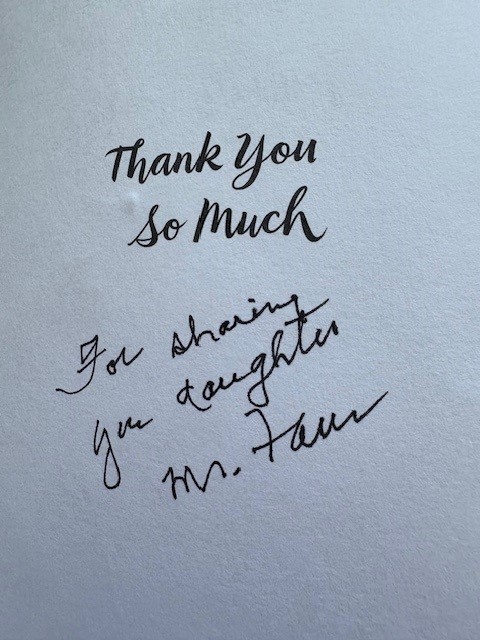 Thank You
So Much
For sharing
your daughter
Mr.